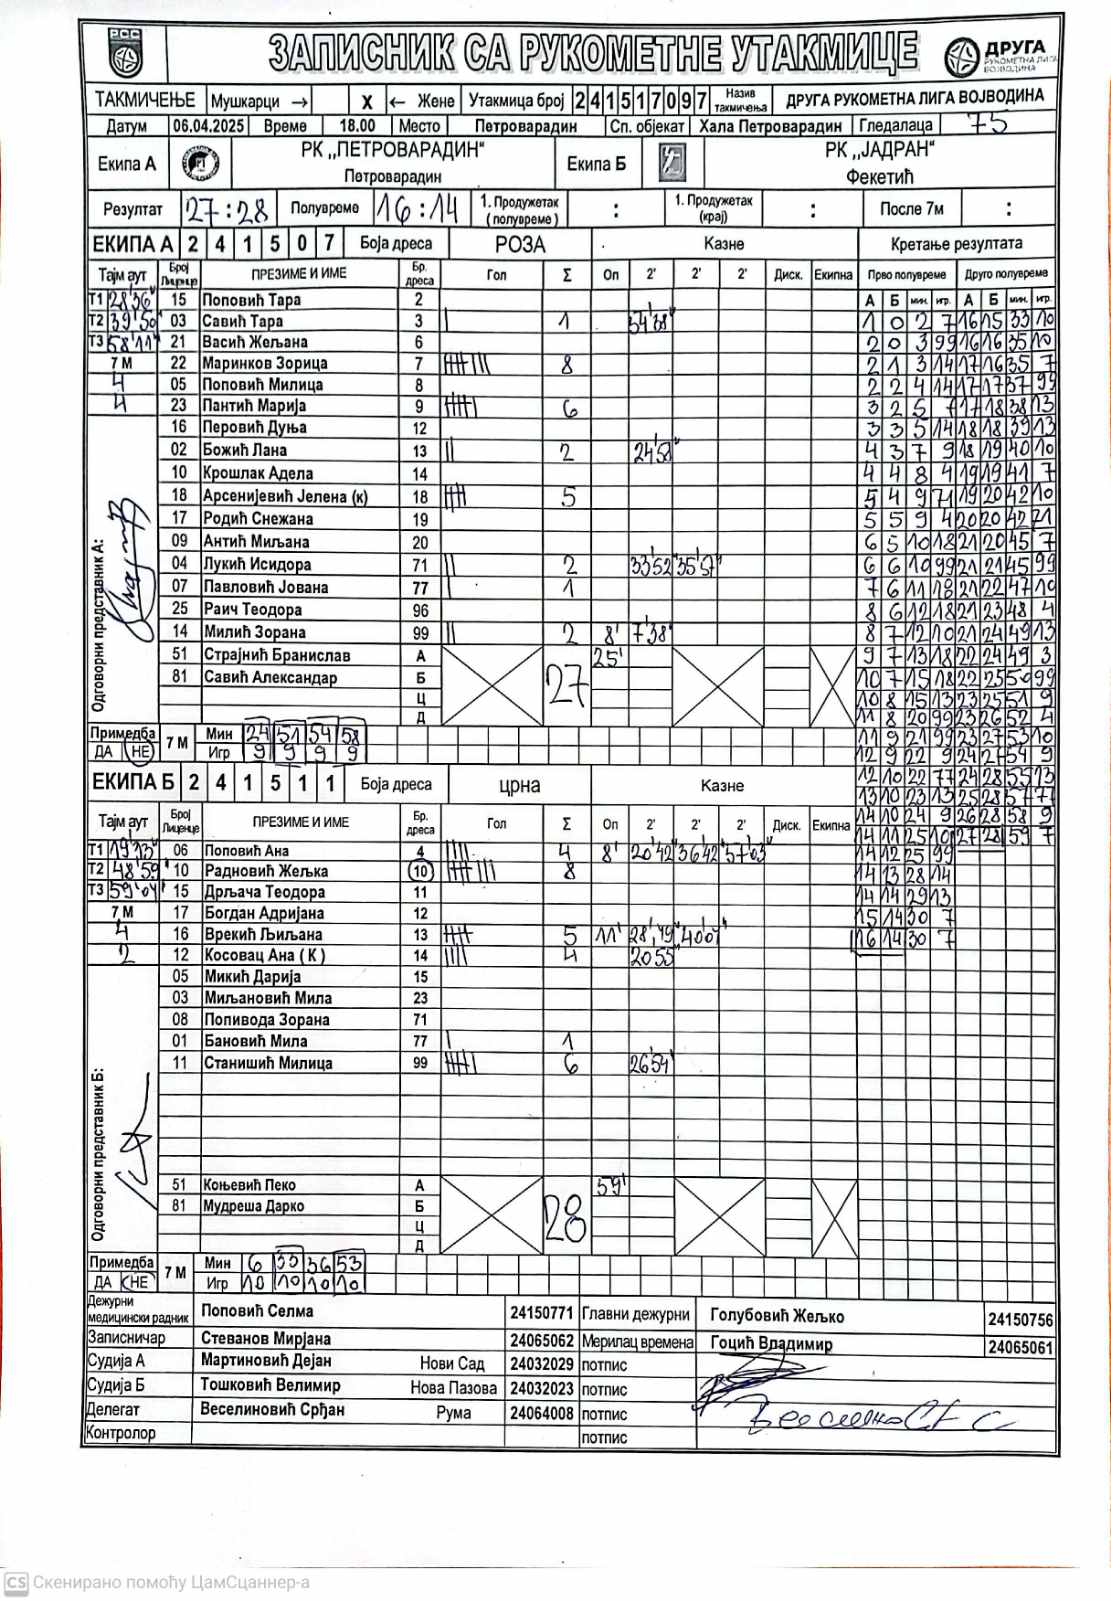 РСС
ЗАПИСНИК СА РУКОМЕТНЕ УТАКМИЦЕ
ДРУГА
РУКОМЕТНА ЛИГА
ВОЈВОДИНА
ТАКМИЧЕЊЕ Мушкарци → X ← Жене Утакмица број 2 4 1 5 1 7 0 9 7 Назив такмичења ДРУГА РУКОМЕТНА ЛИГА ВОЈВОДИНА
Датум 06.04.2025 Време 18.00 Место Петроварадин Сп. објекат Хала Петроварадин Гледалаца 75
Екипа А РК „ПЕТРОВАРАДИН“ Петроварадин Екипа Б РК „ЈАДРАН“ Фекетић
Резултат 27:28 Полувреме 16:14 1. Продужетак (полувреме) : 1. Продужетак (крај) : После 7м :
ЕКИПА А 2 4 1 5 0 7 Боја дреса РОЗА Казне Кретање резултата
Тајм аут Број Лиценце ПРЕЗИМЕ И ИМЕ Бр. дреса Гол Σ Оп 2' 2' 2' Диск. Екипна Прво полувреме Друго полувреме
Т1 28'36" 15 Поповић Тара 2 А Б мин. игр. А Б мин. игр.
Т2 39'50" 03 Савић Тара 3 1 54'38" 1 0 2 7 16 15 33 10
Т3 58'11" 21 Васић Жељана 6 2 0 3 99 16 16 35 10
7 М 22 Маринков Зорица 7 8 2 1 3 14 17 16 35 7
4 05 Поповић Милица 8 2 2 4 14 17 17 37 99
4 23 Пантић Марија 9 6 3 2 5 7 17 18 38 13
16 Перовић Дуња 12 3 3 5 14 18 18 39 13
02 Божић Лана 13 2 24'58" 4 3 7 9 18 19 40 10
10 Крошлак Адела 14 4 4 8 4 19 19 41 7
18 Арсенијевић Јелена (к) 18 5 5 4 9 71 19 20 42 10
17 Родић Снежана 19 5 5 9 4 20 20 42 71
09 Антић Миљана 20 6 5 10 18 21 20 45 7
04 Лукић Исидора 71 2 33'52" 35'57" 6 6 10 99 21 21 45 99
07 Павловић Јована 77 1 7 6 11 18 21 22 47 10
25 Раич Теодора 96 8 6 12 18 21 23 48 4
14 Милић Зорана 99 2 8' 7'38" 8 7 12 10 21 24 49 13
51 Страјнић Бранислав А 27 25' 9 7 13 18 22 24 49 3
81 Савић Александар Б 10 7 15 18 22 25 50 99
Ц 10 8 15 13 23 25 51 9
Д 11 8 20 99 23 26 52 4
Примедба 7 М Мин 24 51 54 58 11 9 21 99 23 27 53 10
ДА НЕ Игр 9 9 9 9 12 9 22 9 24 27 54 9
ЕКИПА Б 2 4 1 5 1 1 Боја дреса црна Казне 12 10 22 77 24 28 55 13
13 10 23 13 25 28 57 77
Тајм аут Број Лиценце ПРЕЗИМЕ И ИМЕ Бр. дреса Гол Σ Оп 2' 2' 2' Диск. Екипна 14 10 24 9 26 28 58 9
14 11 25 10 27 28 59 7
Т1 19'13" 06 Поповић Ана 4 4 8' 20'42" 36'42" 57'03" 14 12 25 99
Т2 48'59" 10 Радновић Жељка 10 8 14 13 28 14
Т3 59'04" 15 Дрљача Теодора 11 14 14 29 13
7 М 17 Богдан Адријана 12 15 14 30 7
4 16 Врекић Љиљана 13 5 11' 28'49" 40'07" 16 14 30 7
2 12 Косовац Ана ( К ) 14 4 20'55"
05 Микић Дарија 15
03 Миљановић Мила 23
08 Попивода Зорана 71
01 Бановић Мила 77 1
11 Станишић Милица 99 6 26'54"
51 Коњевић Пеко А 28 59'
81 Мудреша Дарко Б
Ц
Д
Одговорни представник А:
Одговорни представник Б:
Примедба 7 М Мин 6 33 36 53
ДА НЕ Игр 10 10 10 10
Дежурни медицински радник Поповић Селма 24150771 Главни дежурни Голубовић Жељко 24150756
Записничар Стеванов Мирјана 24065062 Мерилац времена Гоцић Владимир 24065061
Судија А Мартиновић Дејан Нови Сад 24032029 потпис
Судија Б Тошковић Велимир Нова Пазова 24032023 потпис
Делегат Веселиновић Срђан Рума 24064008 потпис
Контролор потпис
CS Скенирано помоћу ЦамСцаннер-а